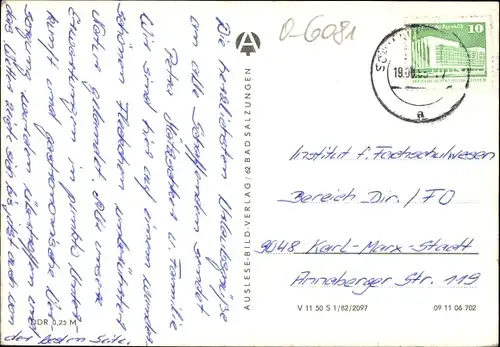 Die herzlichsten Urlaubsgrüße
an alle Schaffenden sendet
Petra u. Familie
Wir sind hier auf einem wunder
schönen Fleckchen unberührter
Natur gelandet. Alle unsere
Erwartungen in punkto Unter
kunft und gastronomische Ver-
sorgung wurden übertroffen und
das Wetter zeigt sich bis jetzt auch von
der besten Seite.
DDR 0,25 M
A
AUSLESE-BILD-VERLAG / 62 BAD SALZUNGEN
O-6081
10
19.
a
Institut f. Fachschulwesen
Bereich Dir. / FO
9048 Karl-Marx-Stadt
Annaberger Str. 119
V 11 50 S 1/82/2097
09 11 06 702